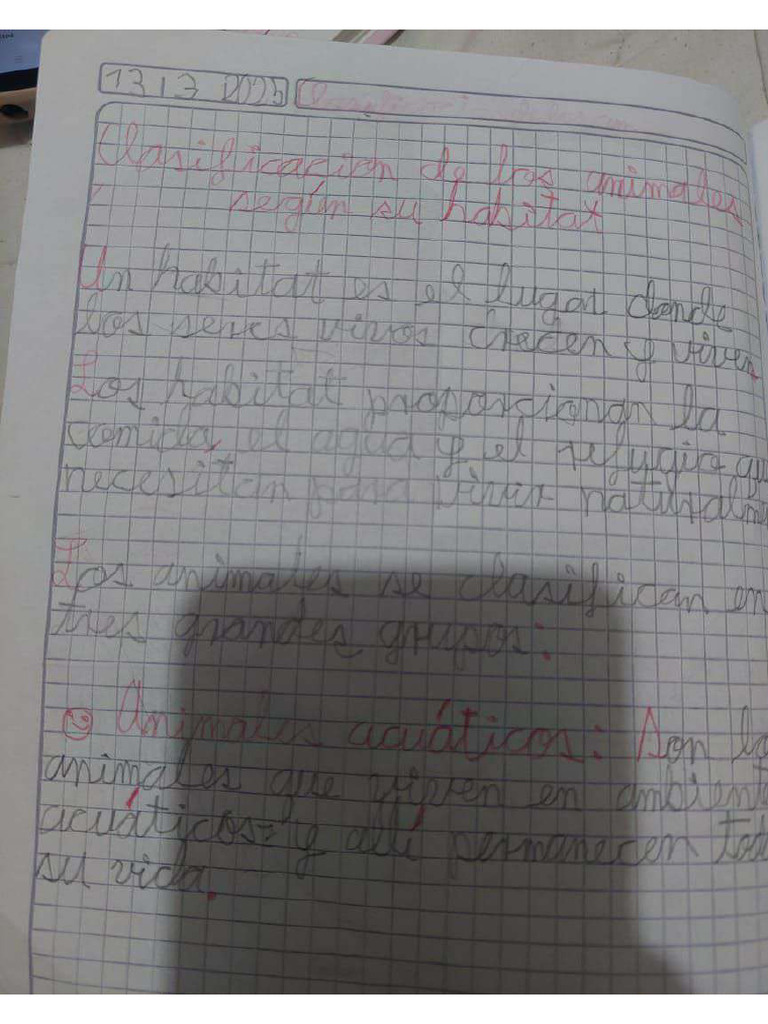 13 13 2025
Clasificacion de los animales
según su habitat
Un habitat es el lugar donde
los seres vivos crecen y viven
Los habitat proporcionan la
comida, el agua y el refugio qu
necesitan para vivir naturalme
Los animales se clasifican en
tres grandes grupos:
Animales acuáticos: Son lo
animales que viven en ambient
acuáticos y allí permanecen tod
su vida.